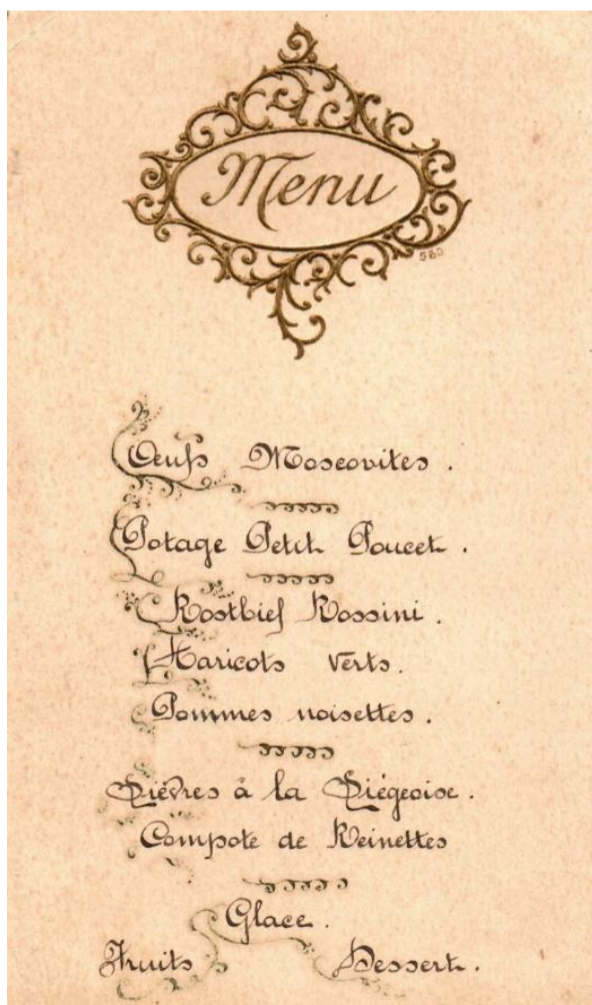 Menu
580
Œufs Moscovites.
Potage Petit Poucet.
Rostbief Rossini.
Haricots verts.
Pommes noisettes.
Lièvres à la Liégeoise.
Compote de Reinettes
Glace.
Fruits Dessert.